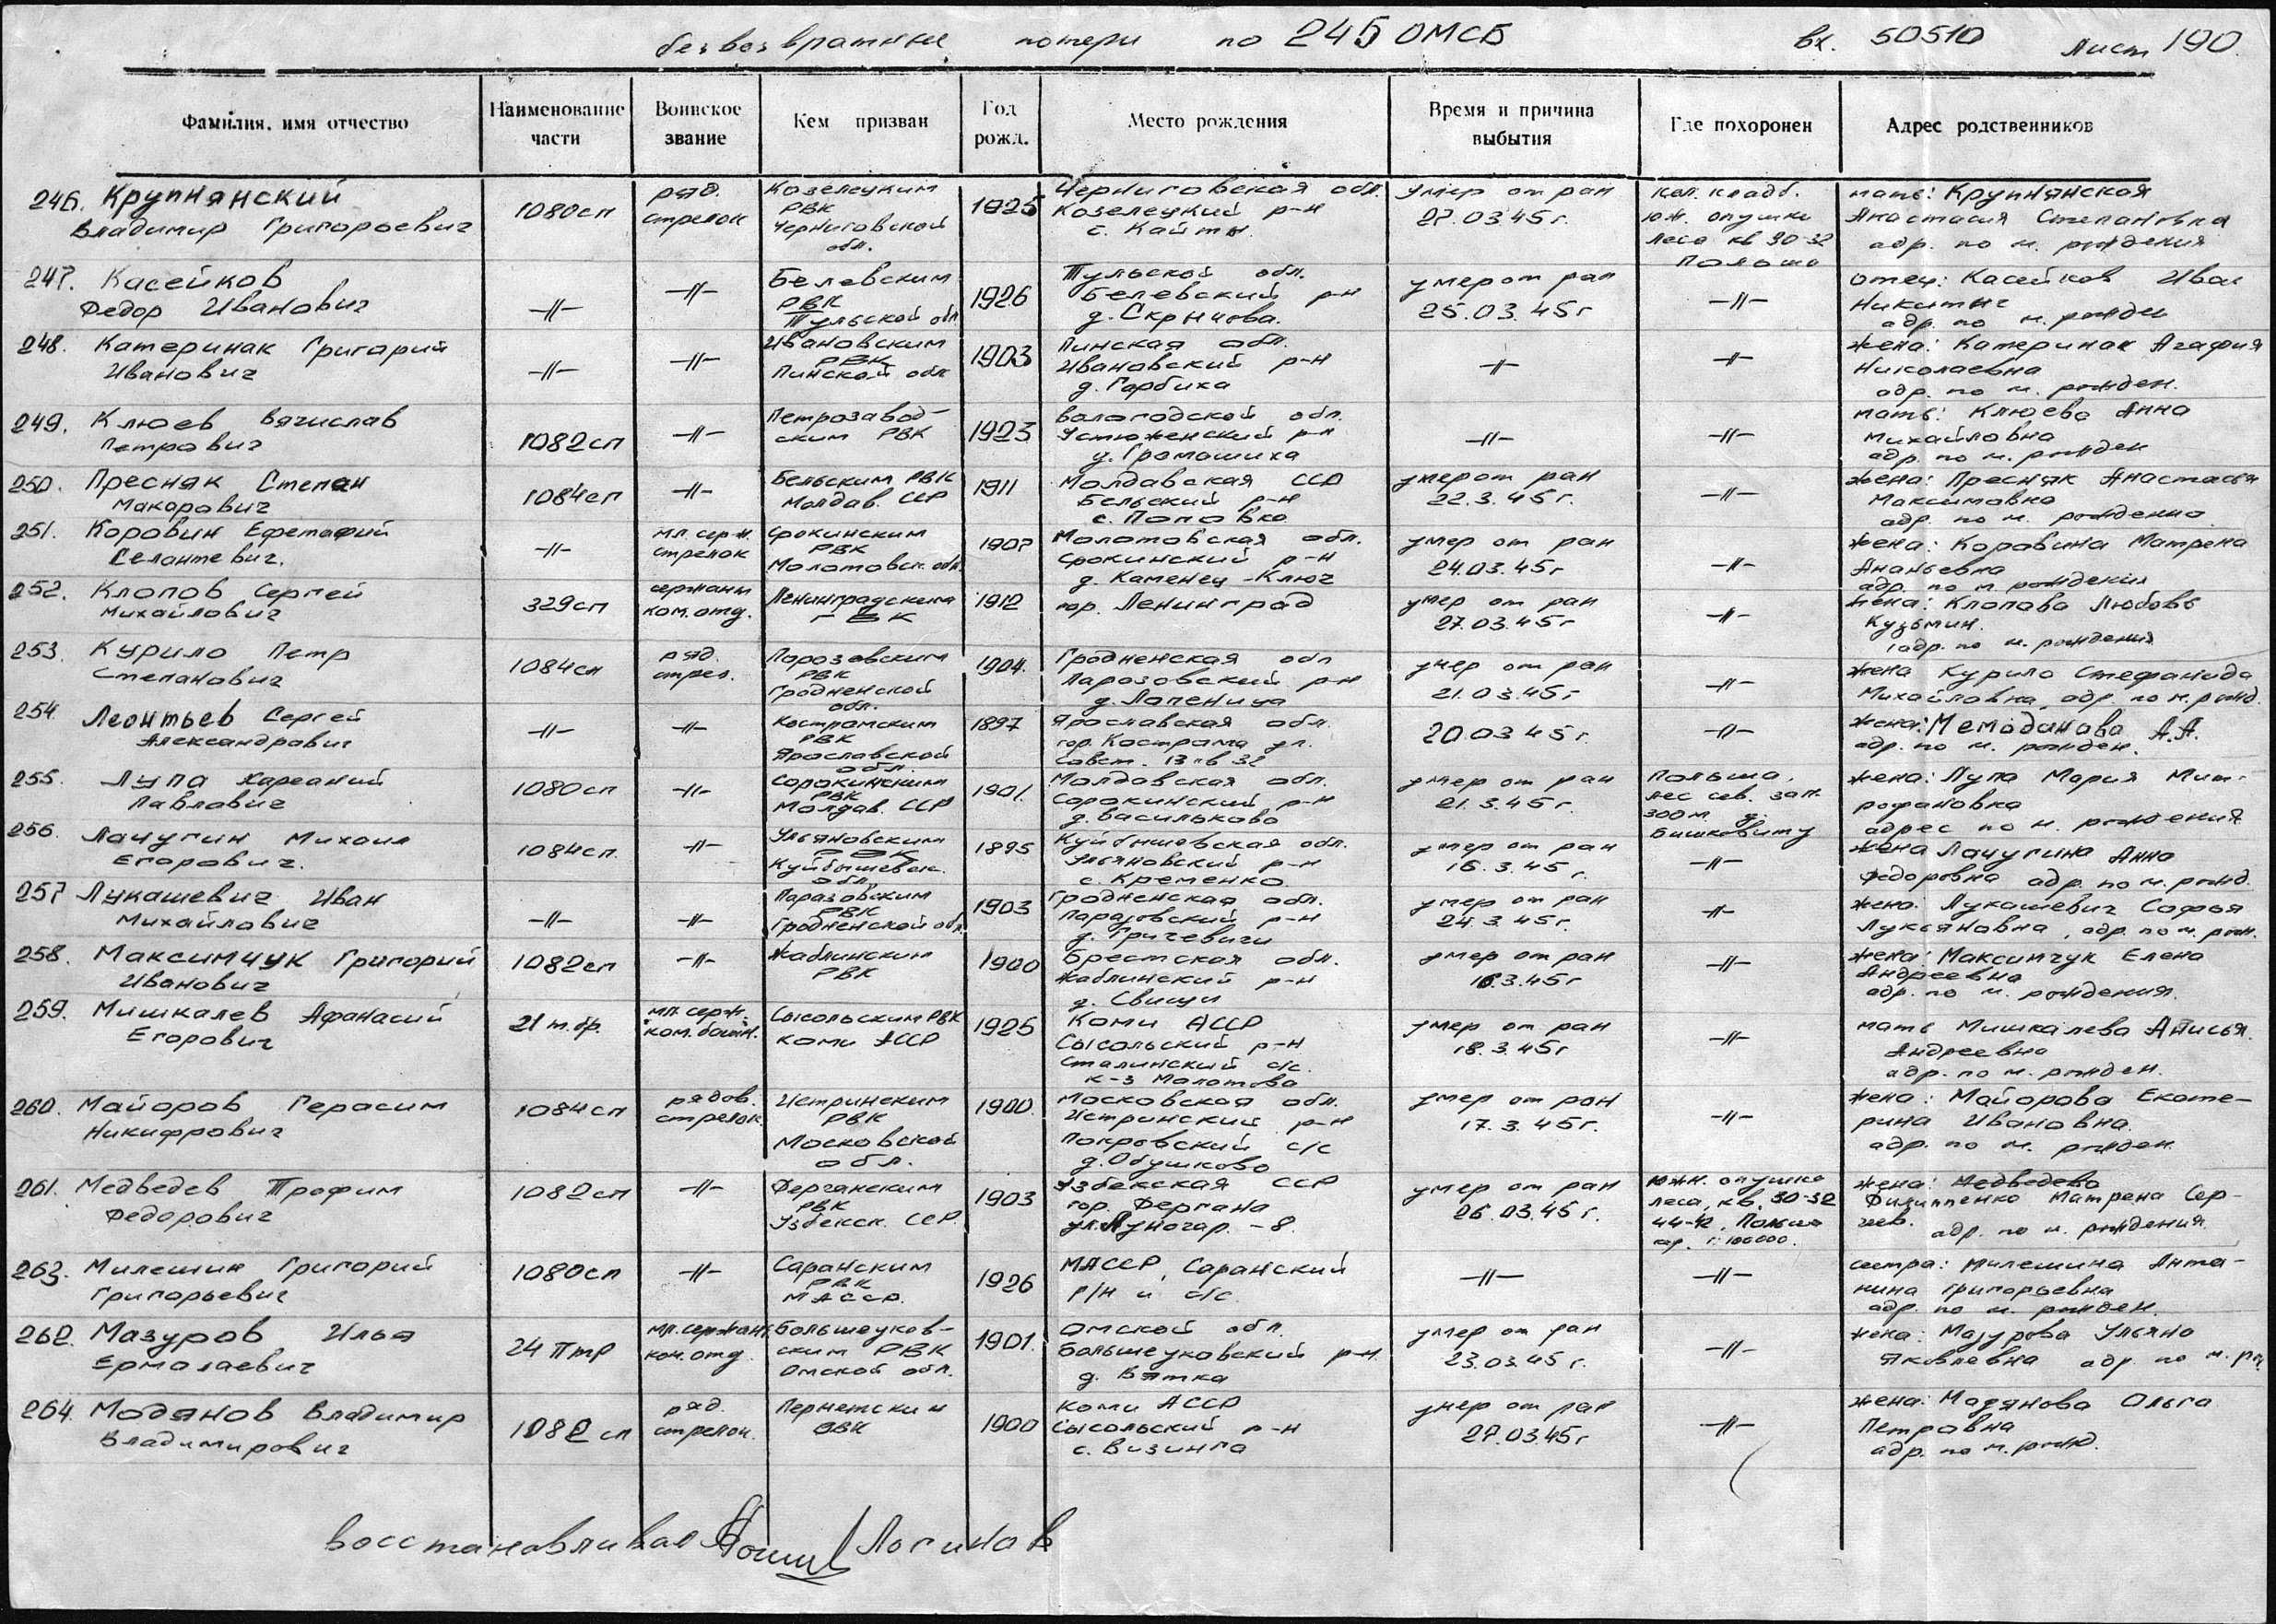 безвозвратные потери по 245 ОМСБ вх. 50510 Лист 190.
Фамилия, имя отчество
Наименование части
Воинское звание
Кем призван
Год рожд.
Место рождения
Время и причина выбытия
Где похоронен
Адрес родственников
246. Крупнянский
Владимир Григорьевич
1080 сп
ряд.
стрелок
Козелецким
РВК
Черниговской
обл.
1925
Черниговская обл.
Козелецкий р-н
с. Кайты.
умер от ран
27.03.45 г.
кол. кладб.
юж. опушка
леса кв 90-32
Польша
мать: Крупнянская
Анастасия Степановна
адр. по м. рождения
247. Касейков
Федор Иванович
-//-
-//-
Белевским
РВК
Тульской обл
1926
Тульской обл.
Белевский р-н
д. Скрынова.
умер от ран
25.03.45 г
-//-
отец: Касейков Иван
Никитыч
адр. по м. рожден
248. Катеринак Григорий
Иванович
-//-
-//-
Ивановским
РВК
Пинской обл
1903
Пинская обл.
Ивановский р-н
д. Горбиха
-//-
-//-
жена: Катеринак Агафия
Николаевна
адр. по м. рожден.
249. Клюев Вячислав
Петрович
1082 сп
-//-
Петрозавод-
ским РВК
1923
Вологодской обл.
Устюженский р-н
д. Громошиха
-//-
-//-
мать: Клюева Анна
Михайловна
адр. по м. рожден
250. Пресняк Степан
Макарович
1084 сп
-//-
Бельским РВК
Молдав. ССР
1911
Молдавская ССР
Бельский р-н
с. Поповка
умер от ран
22.3.45 г.
-//-
жена: Пресняк Анастасья
Максимовна
адр. по м. рождения
251. Коровин Ефетафий
Селантевич.
-//-
мл. серж.
стрелок
Срокинским
РВК
Молотовск. обл.
1907
Молотовская обл.
Срокинский р-н
д. Каменец-Ключ
умер от ран
24.03.45 г
-//-
жена: Коровина Матрена
Ананьевна
адр. по м. рождения
252. Клопов Сергей
Михайлович
329 сп
сержант
ком. отд.
Ленинградским
ГВК
1912
гор. Ленинград
умер от ран
27.03.45 г
-//-
жена: Клопова Любовь
Кузьмин.
адр. по м. рождения
253. Курило Петр
Степанович
1084 сп
ряд.
стрел.
Порозовским
РВК
Гродненской
обл.
1904.
Гродненская обл
Парозовский р-н
д. Лопеница
умер от ран
21.03.45 г
-//-
жена Курило Стефанида
Михайловна, адр. по м. рожд.
254. Леонтьев Сергей
Александрович
-//-
-//-
Костромским
РВК
Ярославской
обл.
1897
Ярославская обл.
гор. Кострома ул.
Совет. 13 кв 32
20.03.45 г.
-//-
жена: Чемоданова А.А.
адр. по м. рожден.
255. Лупа Харсаний
Павлович
1080 сп
-//-
Сорокинским
РВК
Молдав. ССР
1901.
Молдавская обл.
Сорокинский р-н
д. Васильково
умер от ран
21.3.45 г.
Польша,
лес сев. зап.
300 м д.
Бишковиту
жена: Лупа Мария Мит-
рофановна
адрес по м. рождения
256. Лачугин Михаил
Егорович.
1084 сп.
-//-
Ульяновским
РВК
Куйбышевск.
обл.
1895
Куйбышевская обл.
Ульяновский р-н
с. Кременко
умер от ран
16.3.45 г.
-//-
жена Лачугина Анна
Федоровна адр. по м. рожд.
257 Лукашевич Иван
Михайлович
-//-
-//-
Паразовским
РВК
Гродненской обл.
1903
Гродненская обл.
Паразовский р-н
д. Гричевичи
умер от ран
24.3.45 г.
-//-
жена. Лукашевич Софья
Лукьяновна, адр. по м. рож.
258. Максимчук Григорий
Иванович
1082 сп
-//-
Жаблинским
РВК
1900
Брестская обл.
Жаблинский р-н
д. Свищи
умер от ран
16.3.45 г
-//-
жена: Максимчук Елена
Андреевна
адр. по м. рождения.
259. Мишкалев Афанасий
Егорович
21 т. бр.
мл. серж.
ком. башн.
Сысольским РВК
Коми АССР
1925
Коми АССР
Сысольский р-н
Сталинский с/с.
к-з Молотова
умер от ран
18.3.45 г
-//-
мать Мишкалева Анисья.
Андреевна
адр. по м. рожден.
260. Майоров Герасим
Никифрович
1084 сп
рядов.
стрелок.
Истринским
РВК
Московской
обл.
1900.
Московская обл.
Истринский р-н
Покровский с/с
д. Обушково
умер от ран
17.3.45 г.
-//-
жена: Майорова Екате-
рина Ивановна.
адр. по м. рожден.
261. Медведев Трофим
Федорович
1082 сп
-//-
Ферганским
РВК
Узбекск. ССР.
1903
Узбекская ССР
гор. Фергана
ул. Луначар. - 8.
умер от ран
26.03.45 г.
южн. опушка
леса, кв. 90-32
44-42, Польша
кар. 1:100000.
жена: Медведева
Филиппенко Матрена Сер-
геев. адр. по м. рождения.
263. Милешин Григорий
Григорьевич
1080 сп
-//-
Саранским
РВК
МАССР.
1926
МАССР, Саранский
р/н и с/с
-//-
-//-
сестра: Милешина Анто-
нина Григорьевна
адр. по м. рожден.
262. Мазуров Илья
Ермолаевич
24 ПТР
мл. сержант
ком. отд.
Большеуков-
ским РВК
Омской обл.
1901.
Омской обл.
Большеуковский р-н.
д. Вятка
умер от ран
23.03.45 г.
-//-
жена: Мазурова Ульяна
Яковлевна адр. по м. рож
264. Модянов Владимир
Владимирович
1082 сп
ряд.
стрелок.
РВК
1900
Коми АССР
Сысольский р-н
с. Визинга
умер от ран
27.03.45 г
-//-
жена: Модянова Ольга
Петровна
адр. по м. рожд.
восстанавливал Логинов